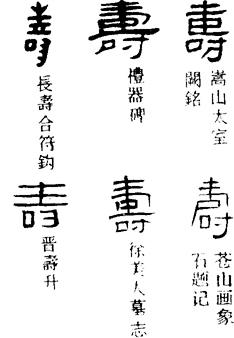 壽
嵩山太室
闕銘
壽
禮器碑
壽
長壽合符鈎
壽
苍山画象
石题记
壽
徐美人墓志
壽
晋壽升